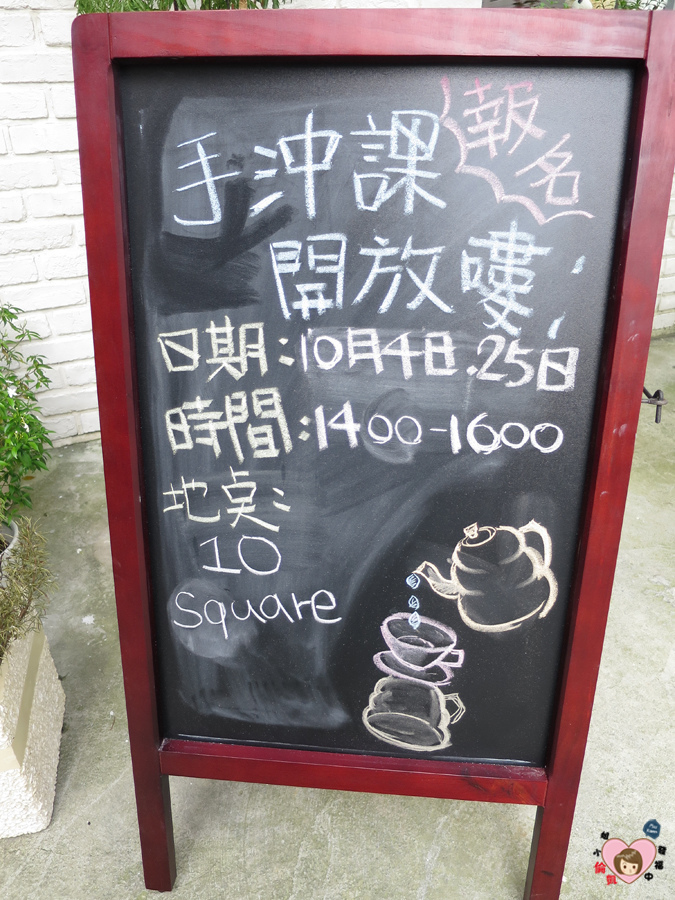 手沖課報名
開放嘍!
日期:10月4日.25日
時間:1400-1600
地點:
10
square